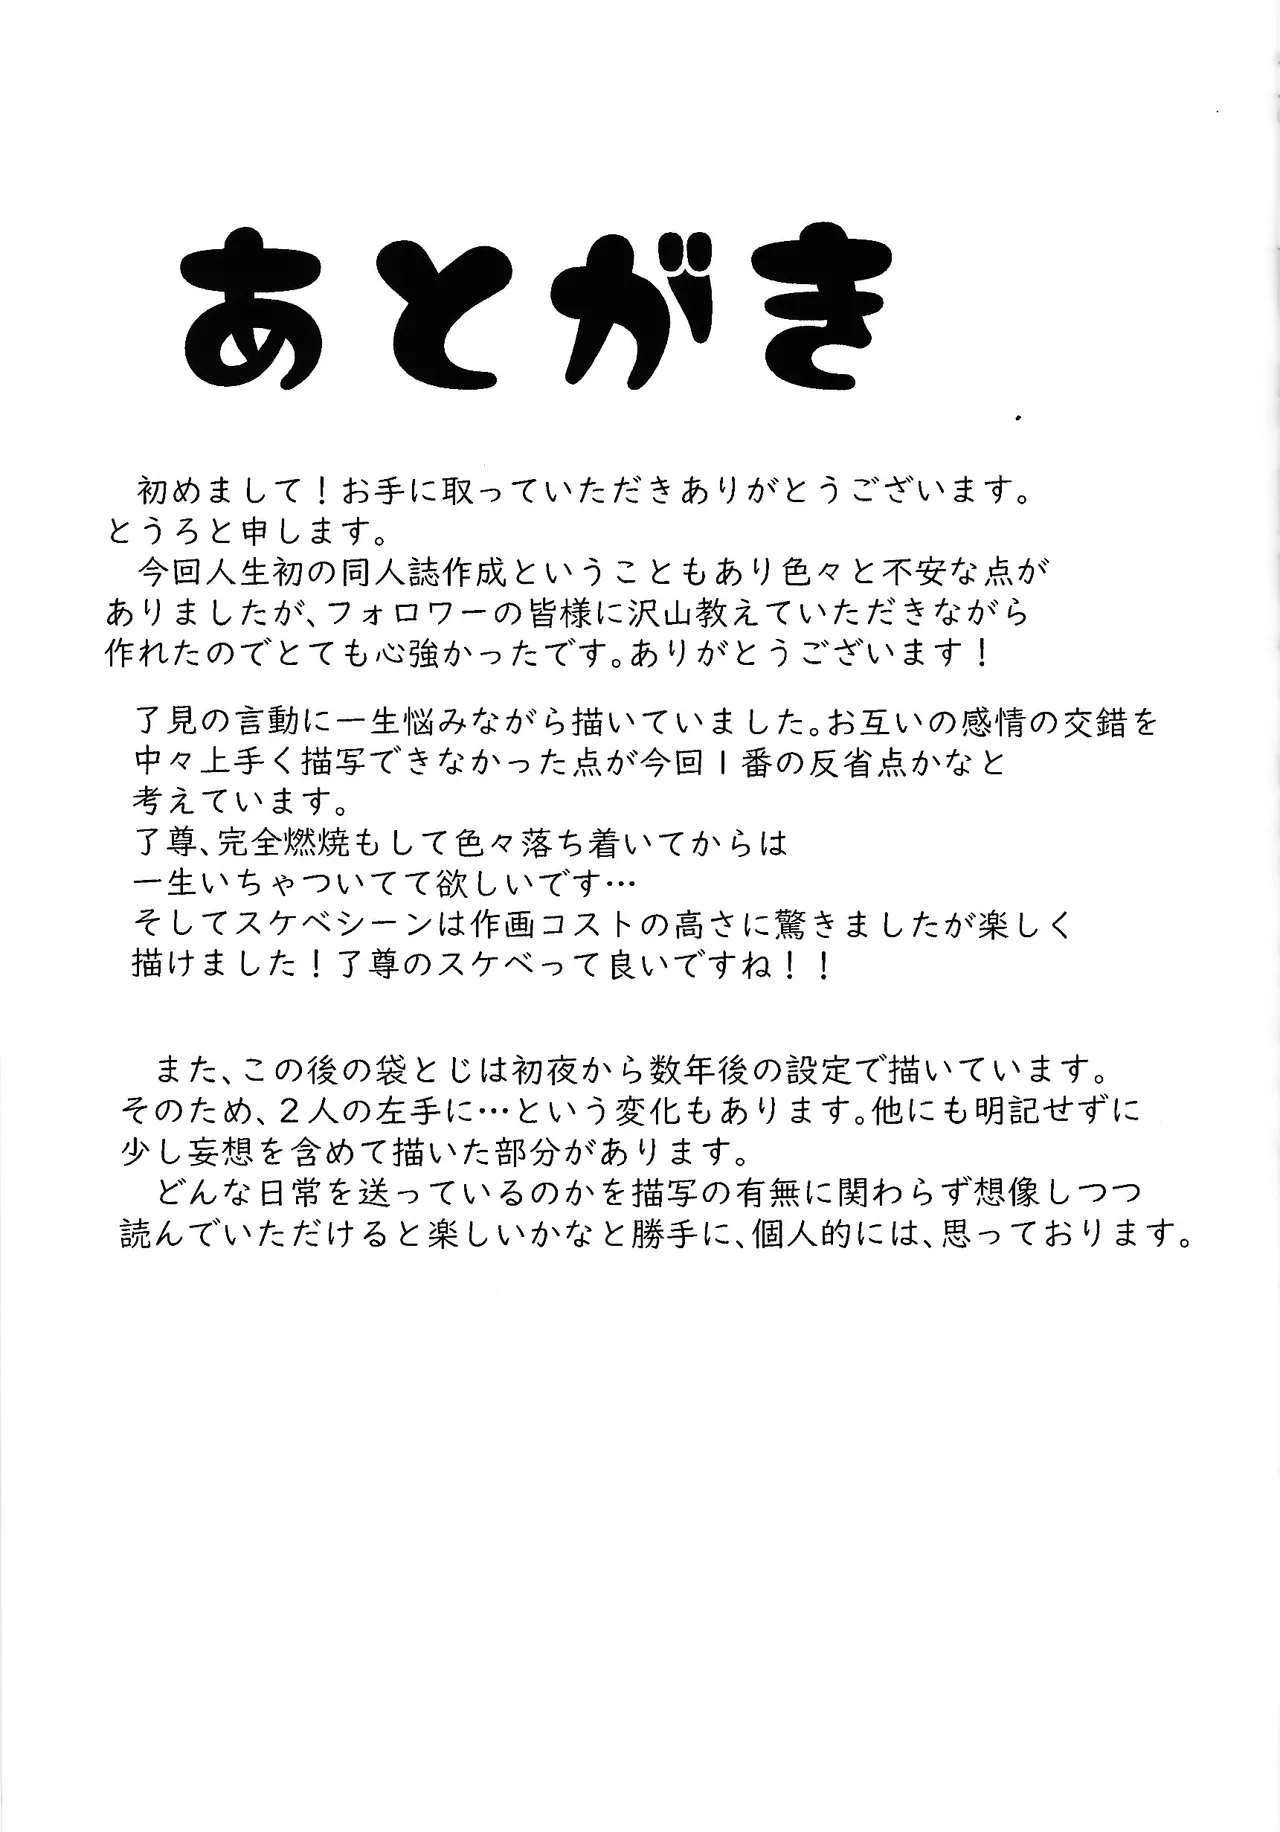 あとがき
初めまして！お手に取っていただきありがとうございます。
とうろと申します。
今回人生初の同人誌作成ということもあり色々と不安な点が
ありましたが、フォロワーの皆様に沢山教えていただきながら
作れたのでとても心強かったです。ありがとうございます！
了見の言動に一生悩みながら描いていました。お互いの感情の交錯を
中々上手く描写できなかった点が今回１番の反省点かなと
考えています。
了尊、完全燃焼もして色々落ち着いてからは
一生いちゃついてて欲しいです…
そしてスケベシーンは作画コストの高さに驚きましたが楽しく
描けました！了尊のスケベって良いですね！！
また、この後の袋とじは初夜から数年後の設定で描いています。
そのため、２人の左手に…という変化もあります。他にも明記せずに
少し妄想を含めて描いた部分があります。
どんな日常を送っているのかを描写の有無に関わらず想像しつつ
読んでいただけると楽しいかなと勝手に、個人的には、思っております。